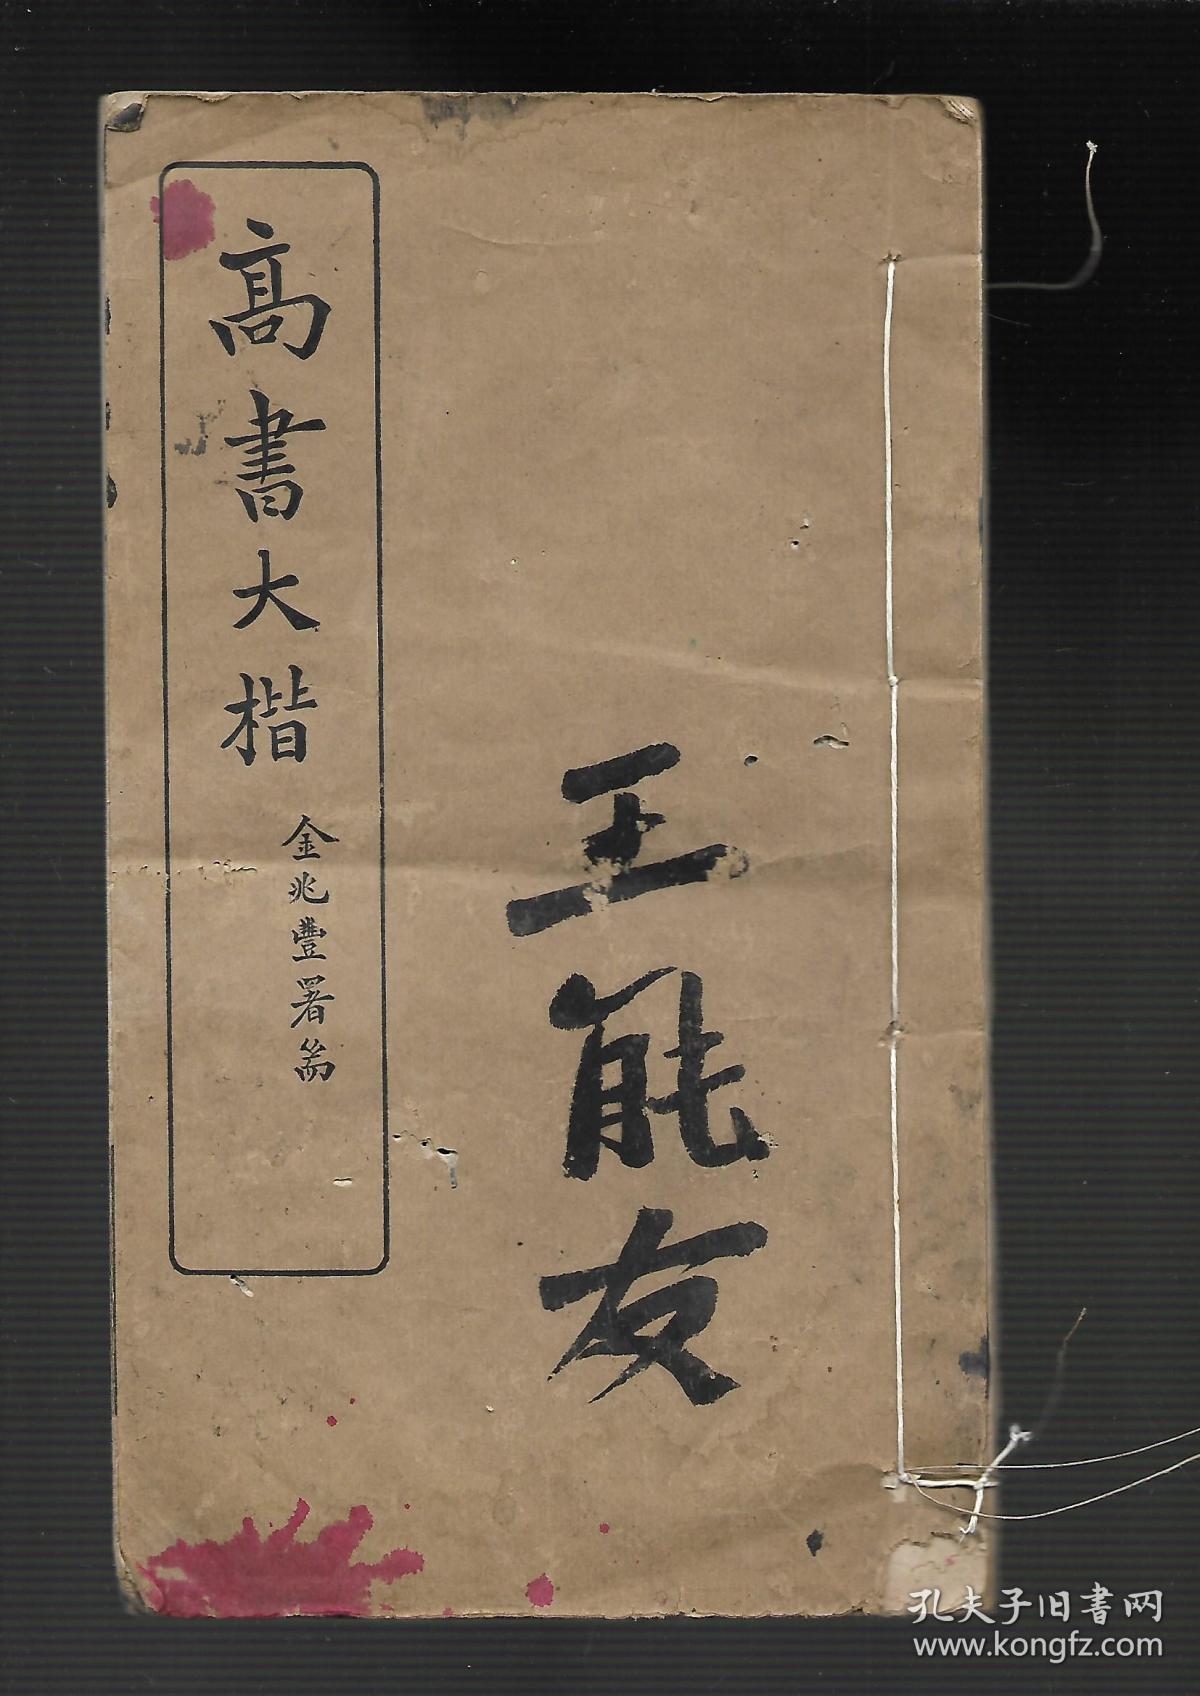 高書大楷
金兆豐署耑
王能友
孔夫子旧書网
www.kongfz.com